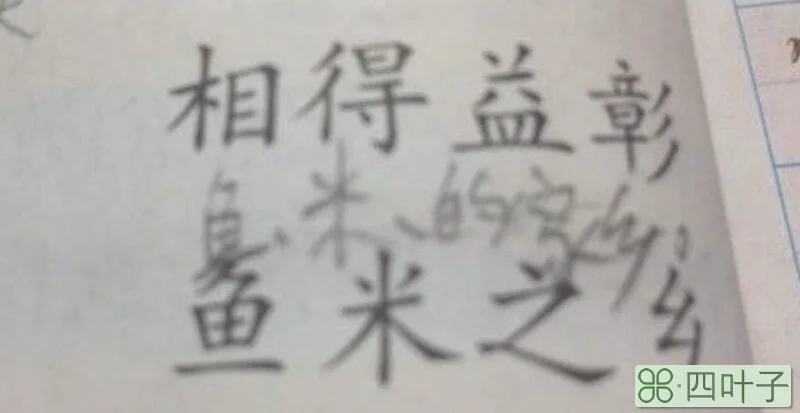 相得益彰
鱼、米、的家乡
鱼米之乡
四叶子